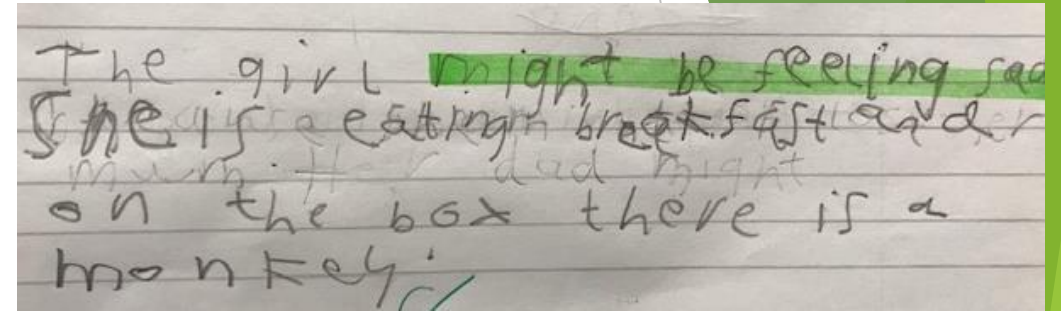 The girl might be feeling sad
She is eating breakfast and
on the box there is a
monkey.